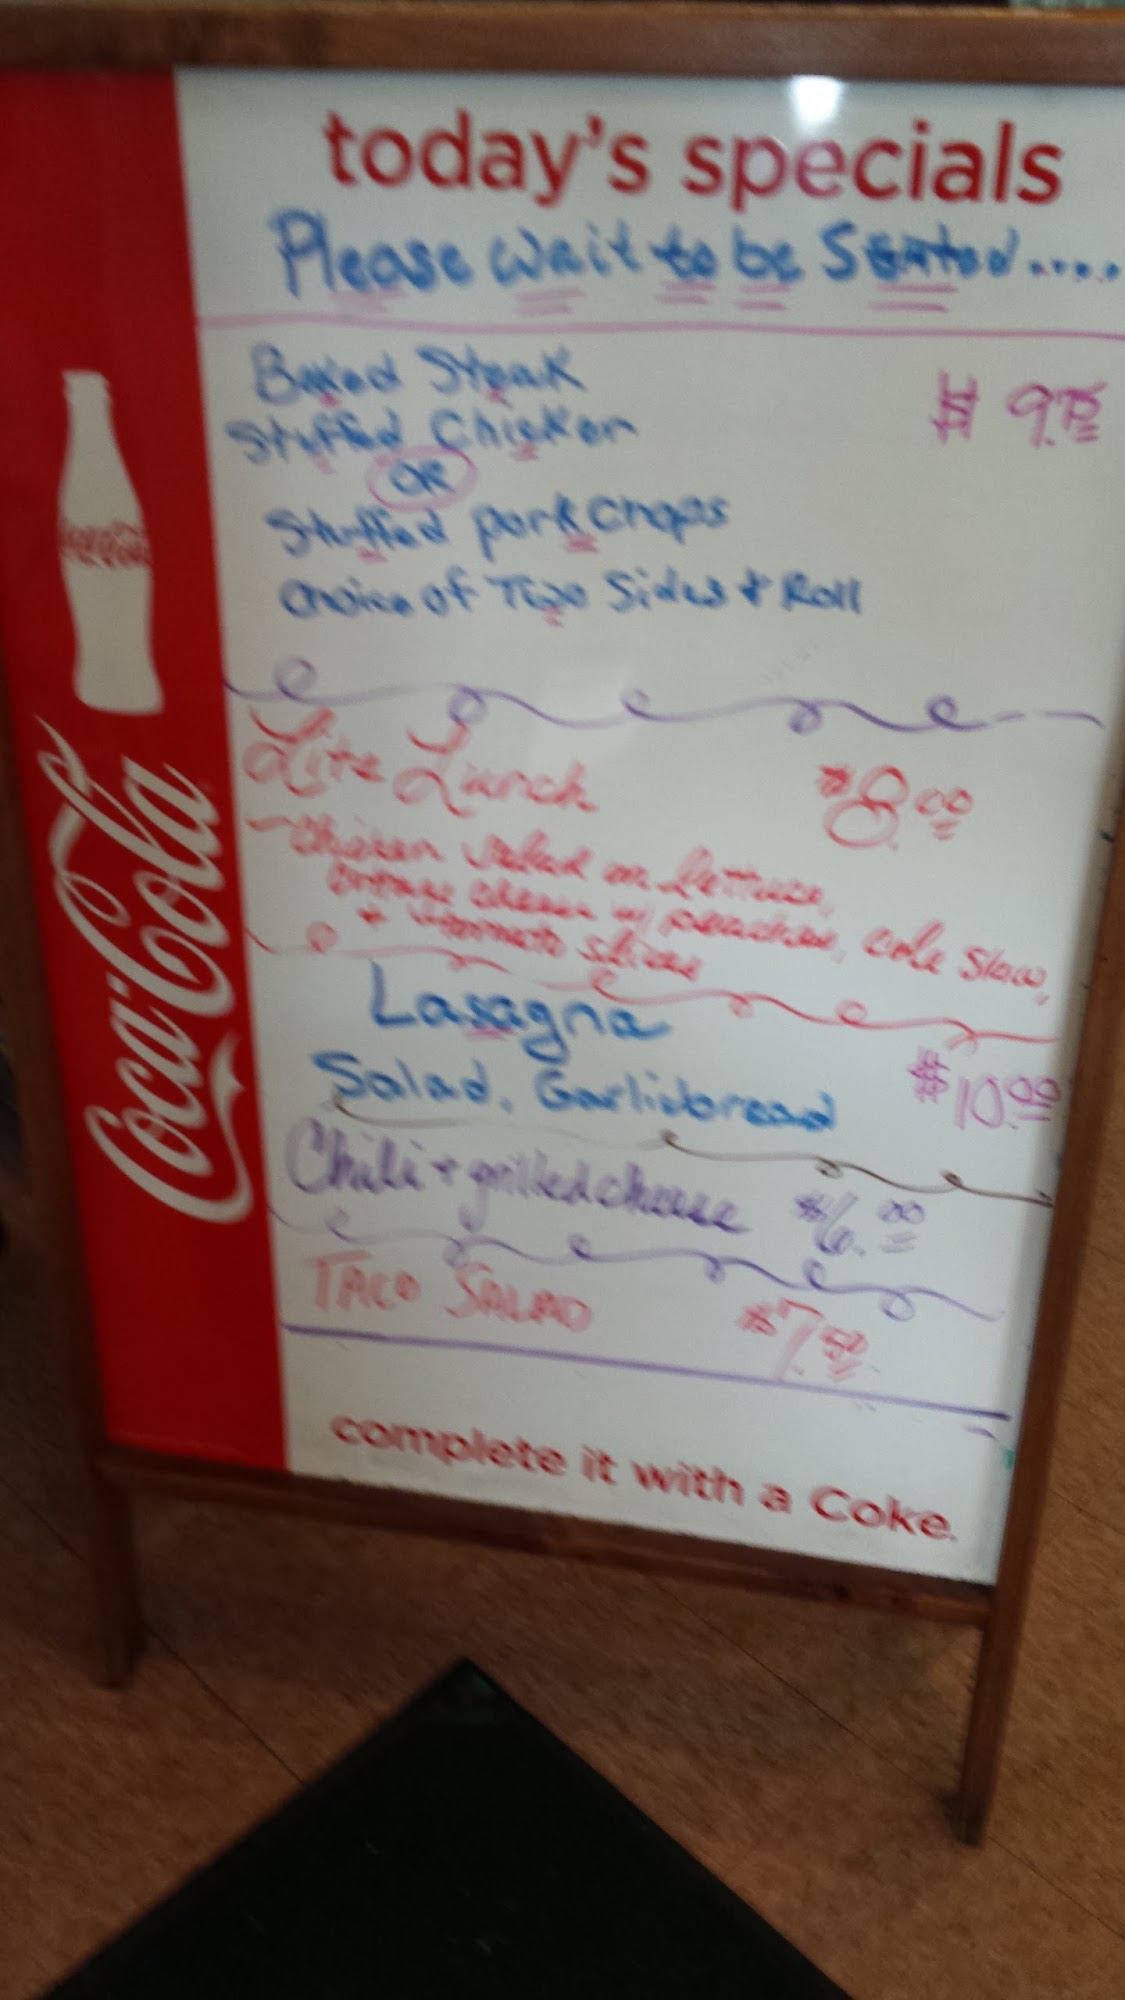 today's specials
Please wait to be Seated.....
Baked Steak
Stuffed Chicken $9.75
OR
Stuffed pork chops
choice of Two Sides + Roll
Lite Lunch $8.00
- Chicken salad on lettuce,
cottage cheese w/ peaches, cole slaw,
+ tomato slices
Lasagna
Salad, Garlicbread $10.00
Chili + grilled cheese $6.00
TACO SALAD $7.50
complete it with a Coke.
Coca-Cola
Coca-Cola